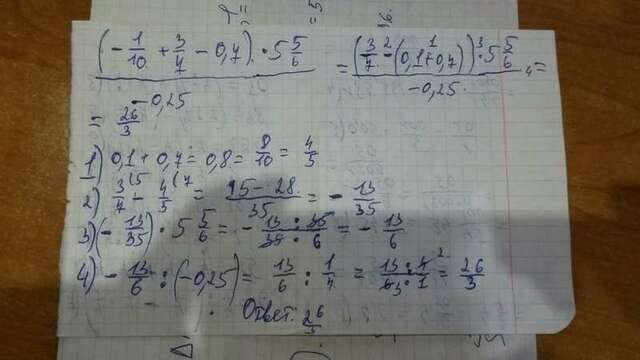 (-1/10 + 3/7 - 0,7) · 5 5/6 / -0,25 = (3/7 - (0,1+0,7)) · 5 5/6 / -0,25 =
= 26/3
1) 0,1 + 0,7 = 0,8 = 8/10 = 4/5
2) 3/7 - 4/5 = 15 - 28 / 35 = - 13/35
3) (- 13/35) · 5 5/6 = - 13 · 35 / 35 · 6 = - 13/6
4) - 13/6 : (-0,25) = 13/6 : 1/4 = 13 · 4 / 6 · 1 = 26/3
Ответ: 26/3